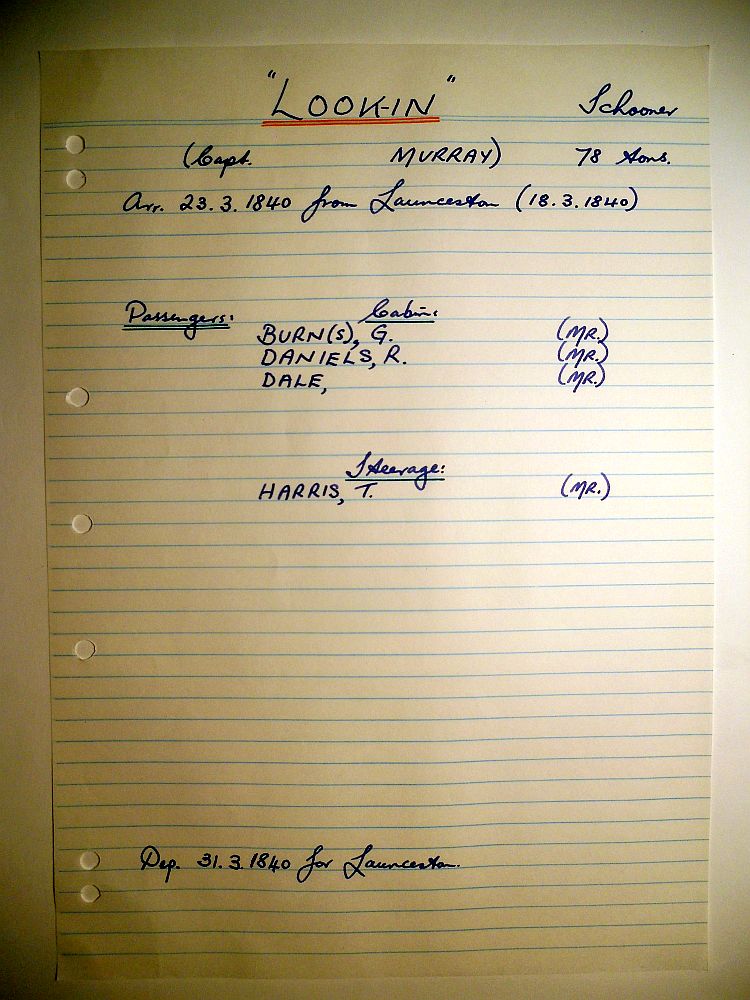 "LOOK-IN" Schooner
(Capt. MURRAY) 78 tons.
Arr. 23.3.1840 from Launceston (18.3.1840)
Passengers: Cabin:
BURN(S), G. (MR.)
DANIELS, R. (MR.)
DALE, (MR.)
Steerage:
HARRIS, T. (MR.)
Dep. 31.3.1840 for Launceston.